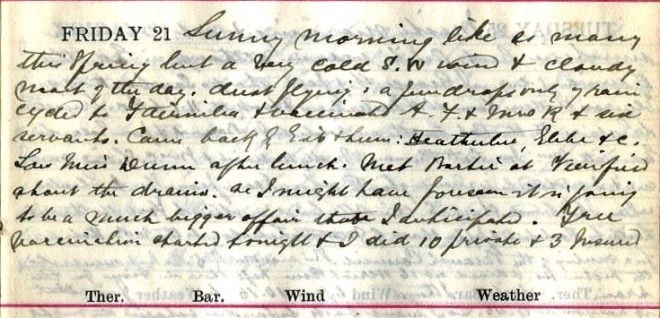 FRIDAY 21 Sunny morning like so many
this Spring but a very cold S.W wind & cloudy
most of the day. dust flying & a few drops only of rain
cycled to & vaccinated A. F. & Mrs K & six
servants. Came back & &c.
Saw Miss Dunn after lunch. Met at
about the drains. as I might have foreseen it is going
to be a much bigger affair than I anticipated. Free
vaccination started tonight & I did 10 private & 3 Insured
Ther. Bar. Wind Weather